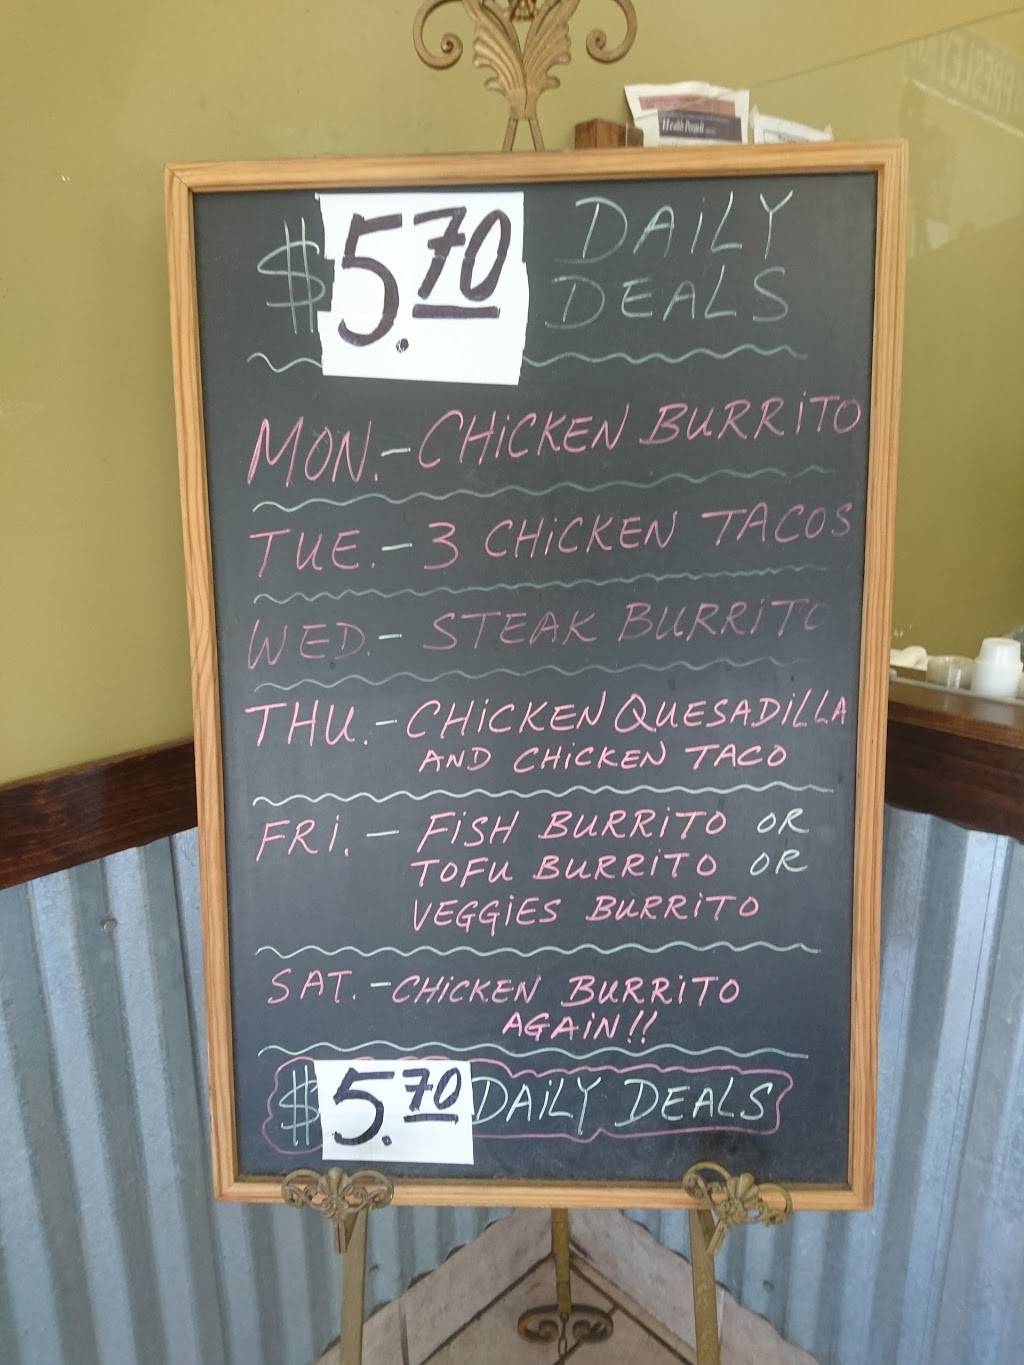 Health Permit
$5.70 DAiLY
DEALS
MON. - CHiCKEN BURRiTO
TUE. - 3 CHiCKEN TACOS
WED. - STEAK BURRiTO
THU. - CHiCKEN QUESADiLLA
AND CHiCKEN TACO
FRi. - FiSH BURRiTO OR
TOFU BURRiTO OR
VEGGiES BURRiTO
SAT. - CHiCKEN BURRiTO
AGAiN!!
$5.70 DAiLY DEALS